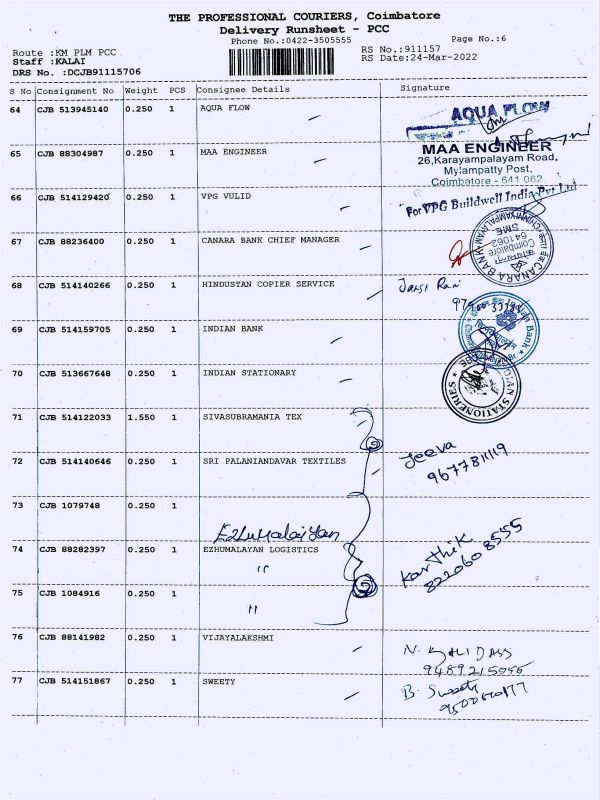 THE PROFESSIONAL COURIERS, Coimbatore
Delivery Runsheet - PCC
Phone No.:0422-3505555
Page No.:6
Route :KM PLM PCC
RS No.:911157
Staff :KALAI
RS Date:24-Mar-2022
DRS No. :DCJB91115706
S No Consignment No Weight PCS Consignee Details Signature
64 CJB 513945140 0.250 1 AQUA FLOW
AQUA FLOW
65 CJB 88304987 0.250 1 MAA ENGINEER
MAA ENGINEER
26,Karayampalayam Road,
Mylampatty Post,
Coimbatore - 641 062
66 CJB 514129420 0.250 1 VPG VULID
For VPG Buildwell India Pvt Ltd
67 CJB 88236400 0.250 1 CANARA BANK CHIEF MANAGER
CANARA BANK
Coimbatore
641062
SME
68 CJB 514140266 0.250 1 HINDUSTAN COPIER SERVICE
69 CJB 514159705 0.250 1 INDIAN BANK
Indian Bank
70 CJB 513667648 0.250 1 INDIAN STATIONARY
INDIAN STATIONERIES
71 CJB 514122033 1.550 1 SIVASUBRAMANIA TEX
72 CJB 514140646 0.250 1 SRI PALANIANDAVAR TEXTILES
Jeeva
9677811119
73 CJB 1079748 0.250 1
Ezhumalaiyan
74 CJB 88282397 0.250 1 EZHUMALAYAN LOGISTICS
"
Karthik
8220608555
75 CJB 1084916 0.250 1
"
76 CJB 88141982 0.250 1 VIJAYALAKSHMI
N. KALIDASS
77 CJB 514151867 0.250 1 SWEETY
B. Sweety